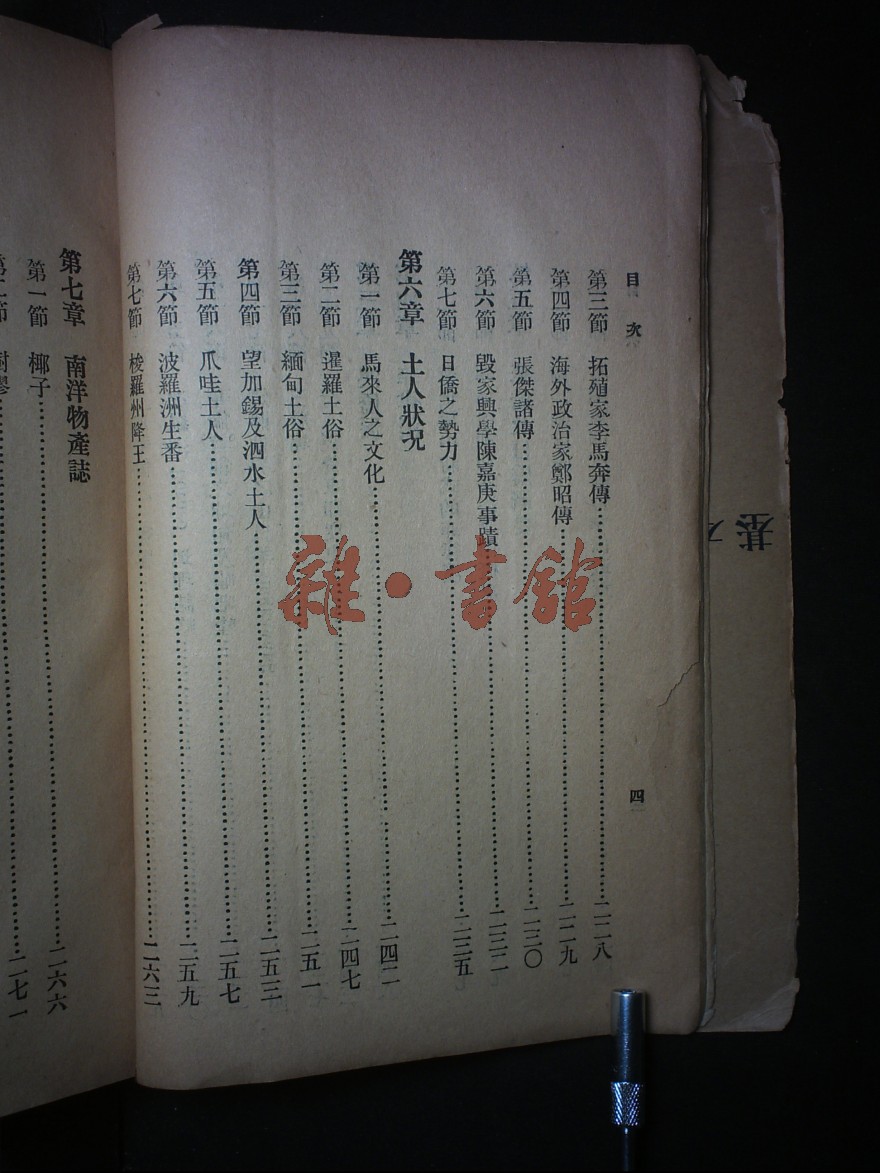 目次
第三節 拓殖家李馬奔傳……二二八
第四節 海外政治家鄭昭傳……二二九
第五節 張傑諸傳……二三〇
第六節 毀家興學陳嘉庚事蹟……二三二
第七節 日僑之勢力……二三五
第六章 土人狀况
第一節 馬來人之文化……二四二
第二節 暹羅土俗……二四七
第三節 緬甸土俗……二五一
第四節 望加錫及泗水土人……二五三
第五節 爪哇土人……二五七
第六節 波羅洲生番……二五九
第七節 梭羅州降王……二六三
四
第七章 南洋物產誌
第一節 椰子……二六六
第二節 樹膠……二七一
雜·書館
基